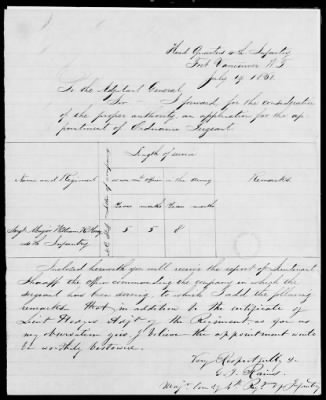 Head Quarters 4th Infantry
Fort Vancouver W. T.
July 19 1861
To the Adjutant General,
Sir I forward for the consideration
of the proper authority, an application for the ap
pointment of Ordnance Sergeant.
Length of service
Name and Regiment
as non com officer
in the Army
Remarks
Years months
Years months
Sergt. Major William H.
5 5 8
4th Infantry
Enclosed herewith you will receive the report of Lieutenant
the officer commanding the company in which the
sergeant has been serving, to which I add the following
remarks: that, in addition to the certificate of
Lieut Hodges Adjt of the Regiment, as far as
my observation goes I believe the appointment would
be worthily bestowed.
Very Respectfully &c
G. J. Rains
Maj. 4th Regt of Infantry